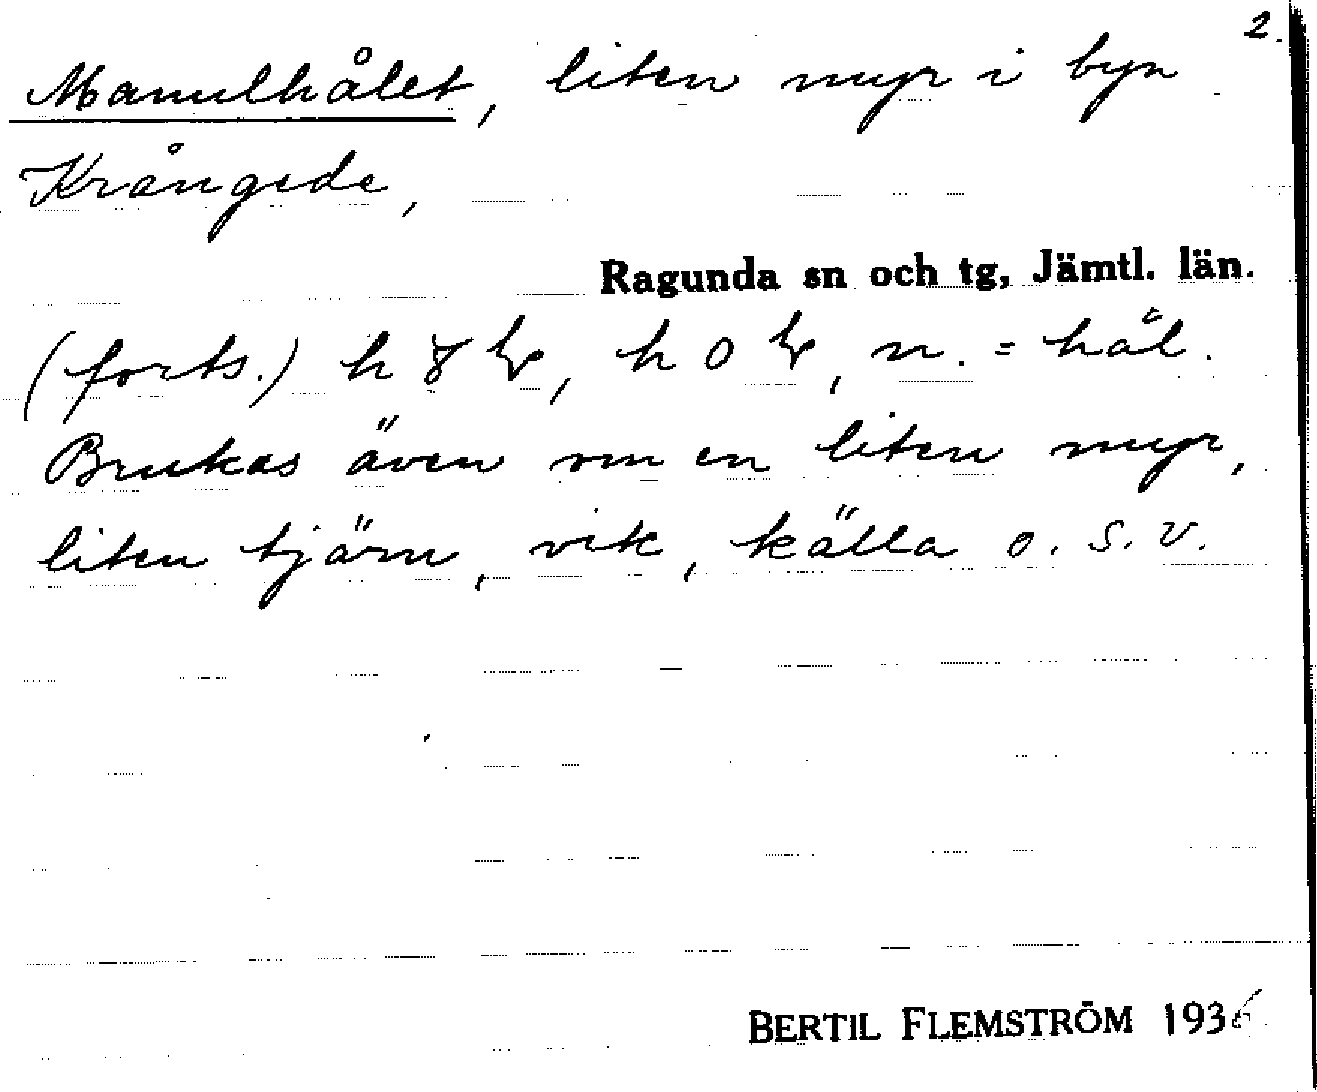 2.
Manulhålet, liten myr i byn
Krångede,
Ragunda sn och tg, Jämtl. län.
(forts.) h, h o, n. = hål.
Brukas även om en liten myr,
liten tjärn, vik, källa o. s. v.
BERTIL FLEMSTRÖM 1936